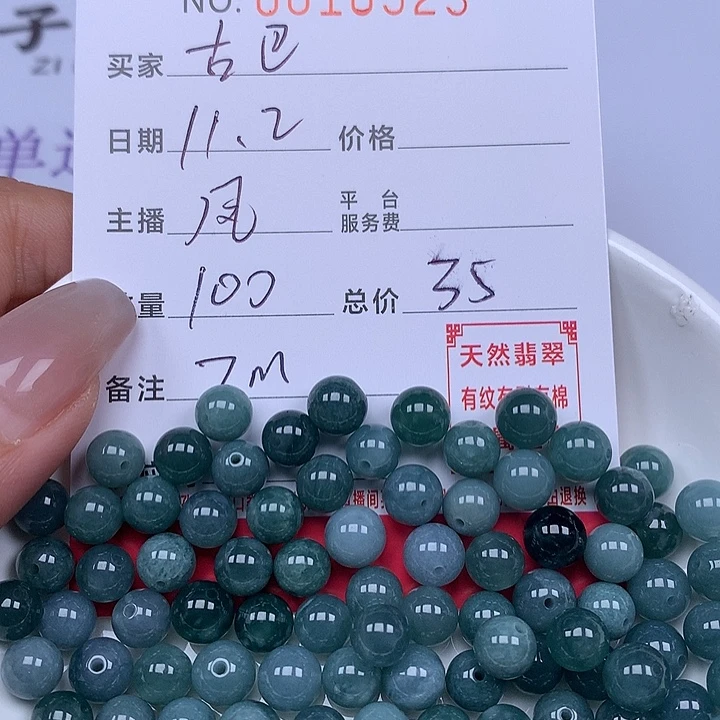 子
ZI
单
NO. 0010523
买家 古巴
日期 11.2 价格
主播 风 平台服务费
量 100 总价 35
备注 7M
天然翡翠
有纹有 有棉
播间 退换